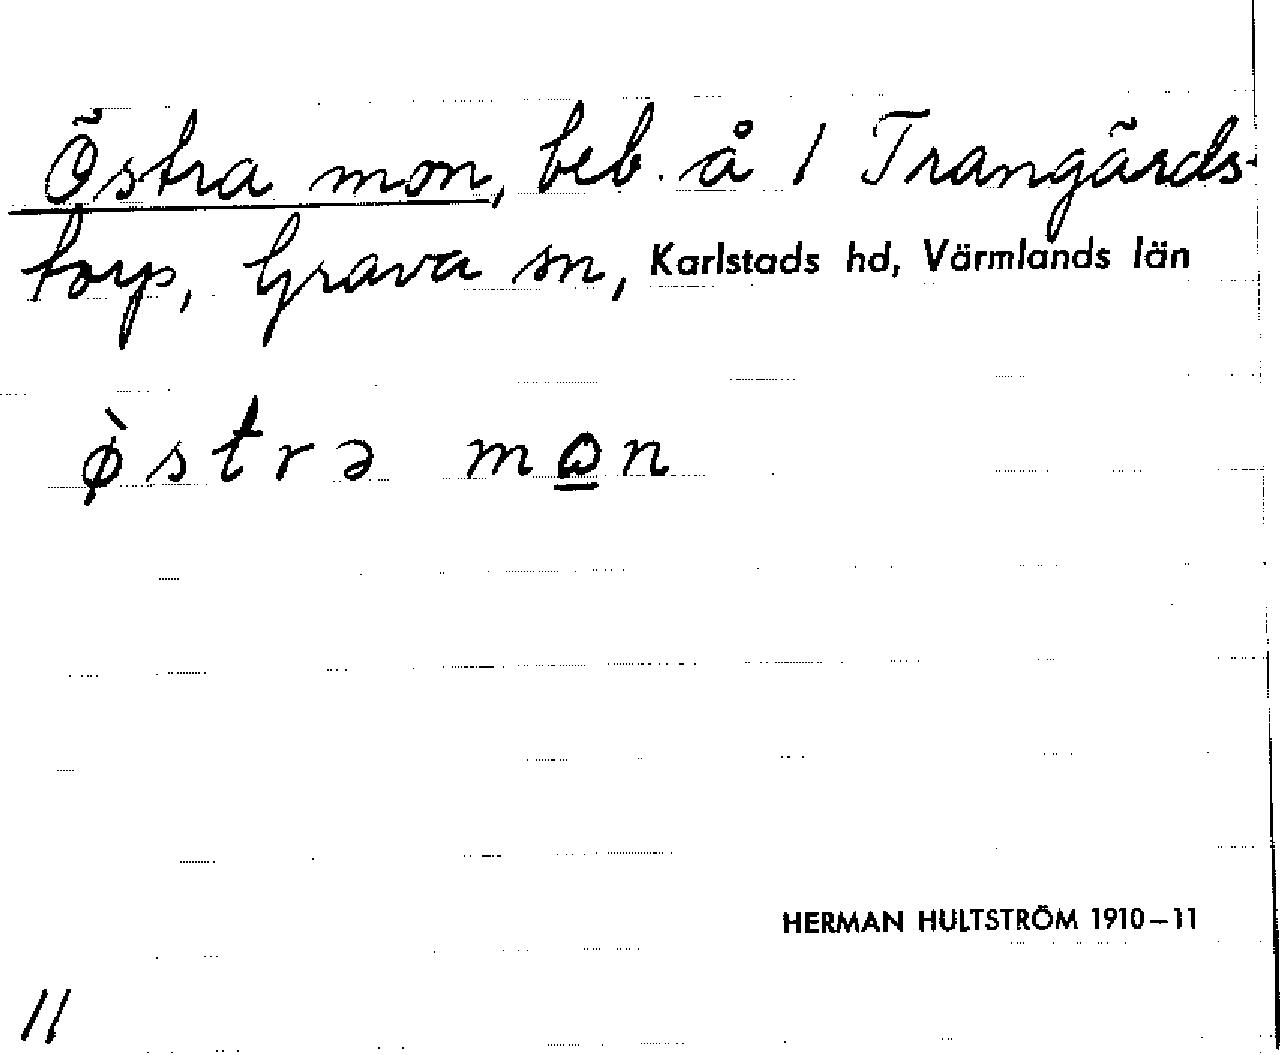 Östra mon, beb. å 1 Trangärds-
torp, Grava sn, Karlstads hd, Värmlands län
ø̀strə mo̲n
HERMAN HULTSTRÖM 1910–11
11